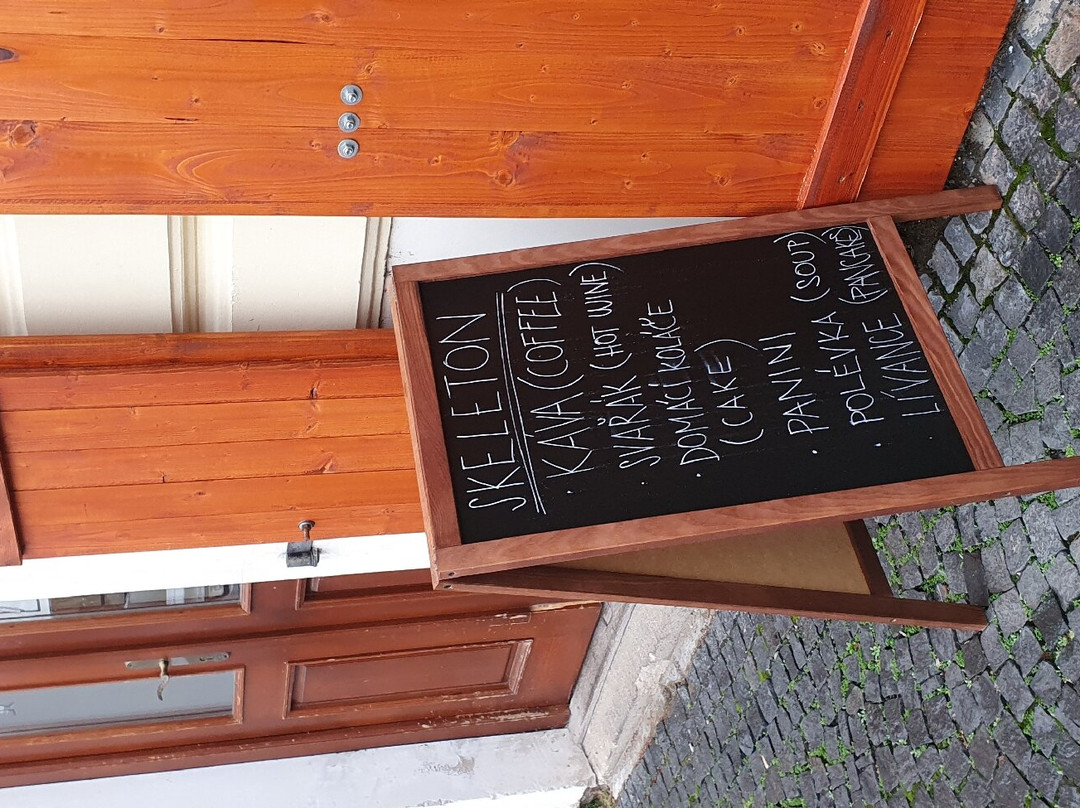 SKELETON
• KAVA (COFFEE)
• SVAŘÁK (HOT WINE)
• DOMÁCÍ KOLÁČE
(CAKE)
• PANINI
• POLÉVKA (SOUP)
• LÍVANCE (PANCAKES)